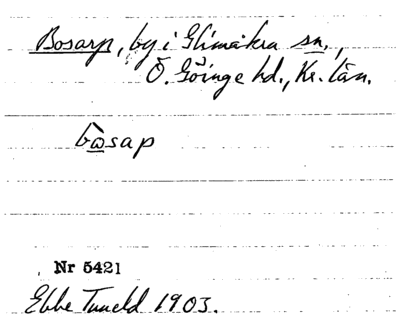 Bosarp, by i Glimåkra sn.,
Ö. Göinge hd., Kr. län.
bò̲sap
Nr 5421
Ebbe Tuneld 1903.